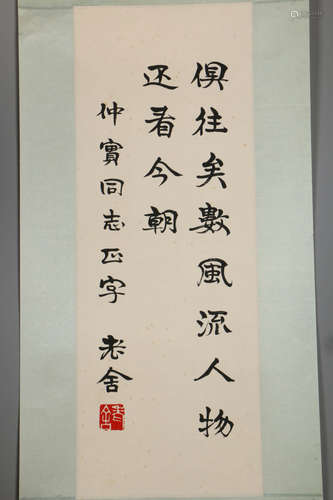 俱往矣數風流人物
还看今朝
仲實同志正字 老舍
老舍